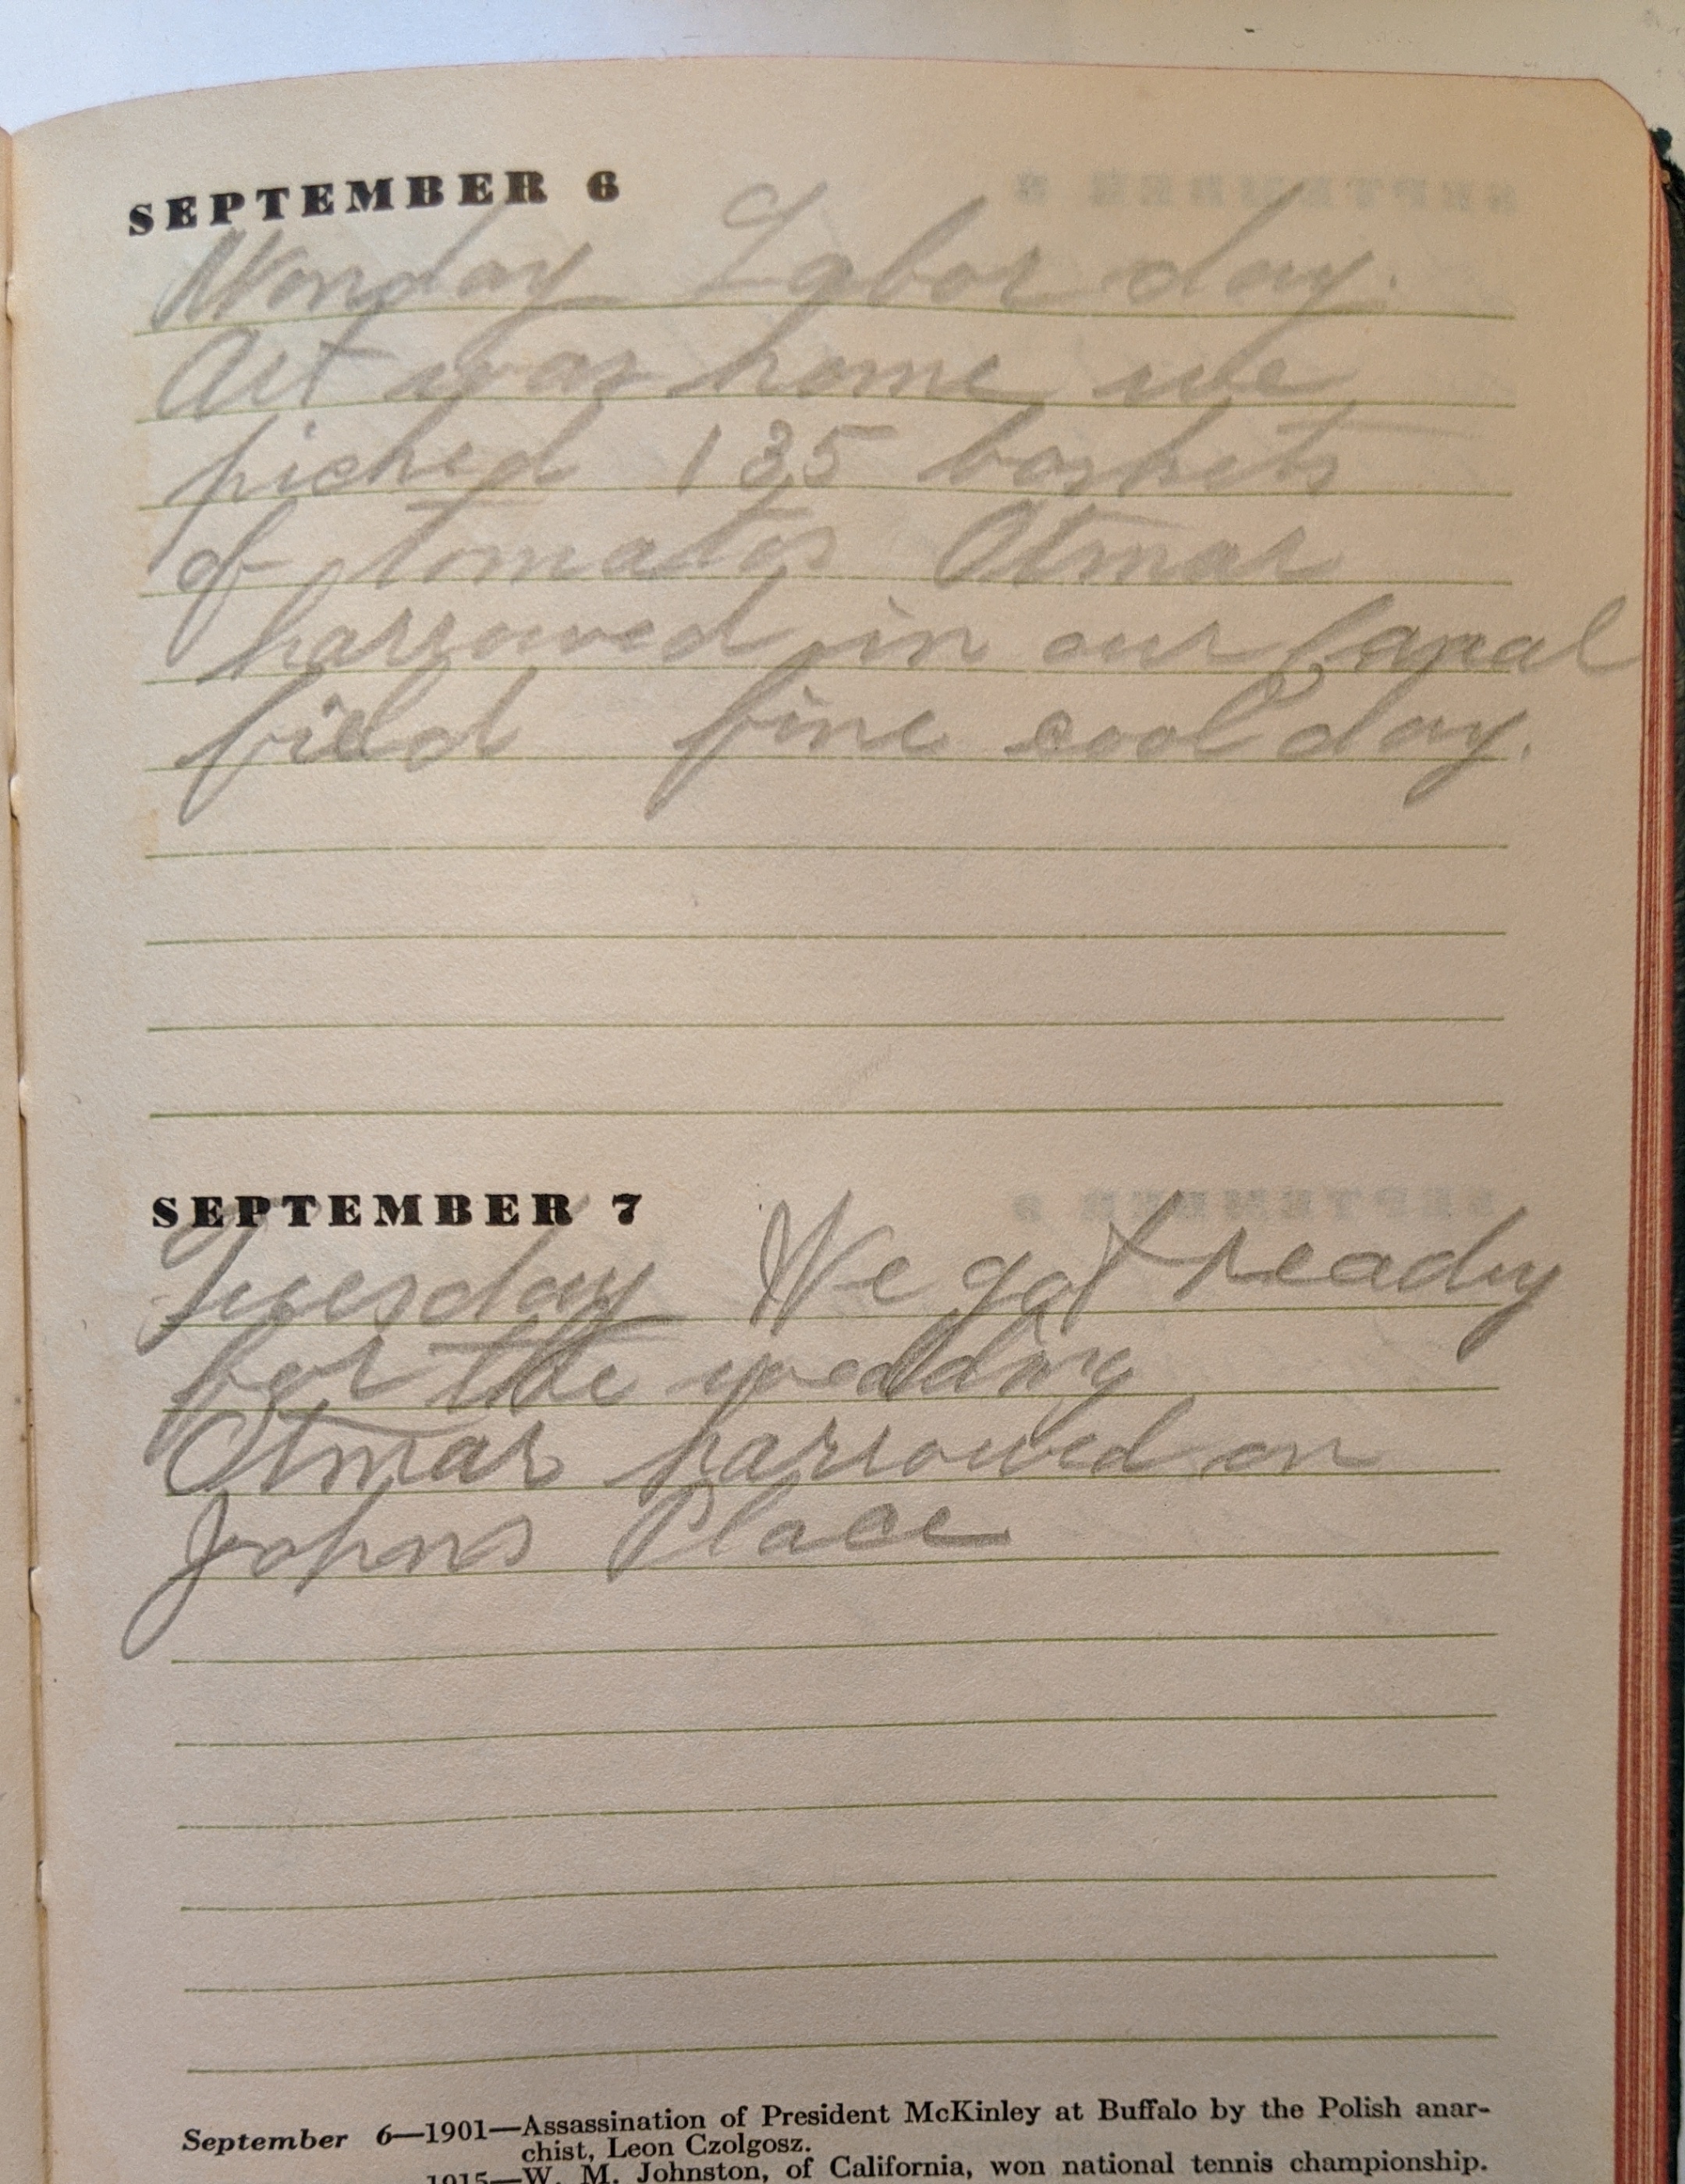 SEPTEMBER 6
Monday Labor day.
Art was home we
picked 135 baskets
of tomatos Otmar
harrowed in our Canal
field fine cool day.
SEPTEMBER 7
Tuesday We got ready
for the wedding
Otmar harrowed on
Johns Place
September 6—1901—Assassination of President McKinley at Buffalo by the Polish anar-
chist, Leon Czolgosz.
1915—W. M. Johnston, of California, won national tennis championship.